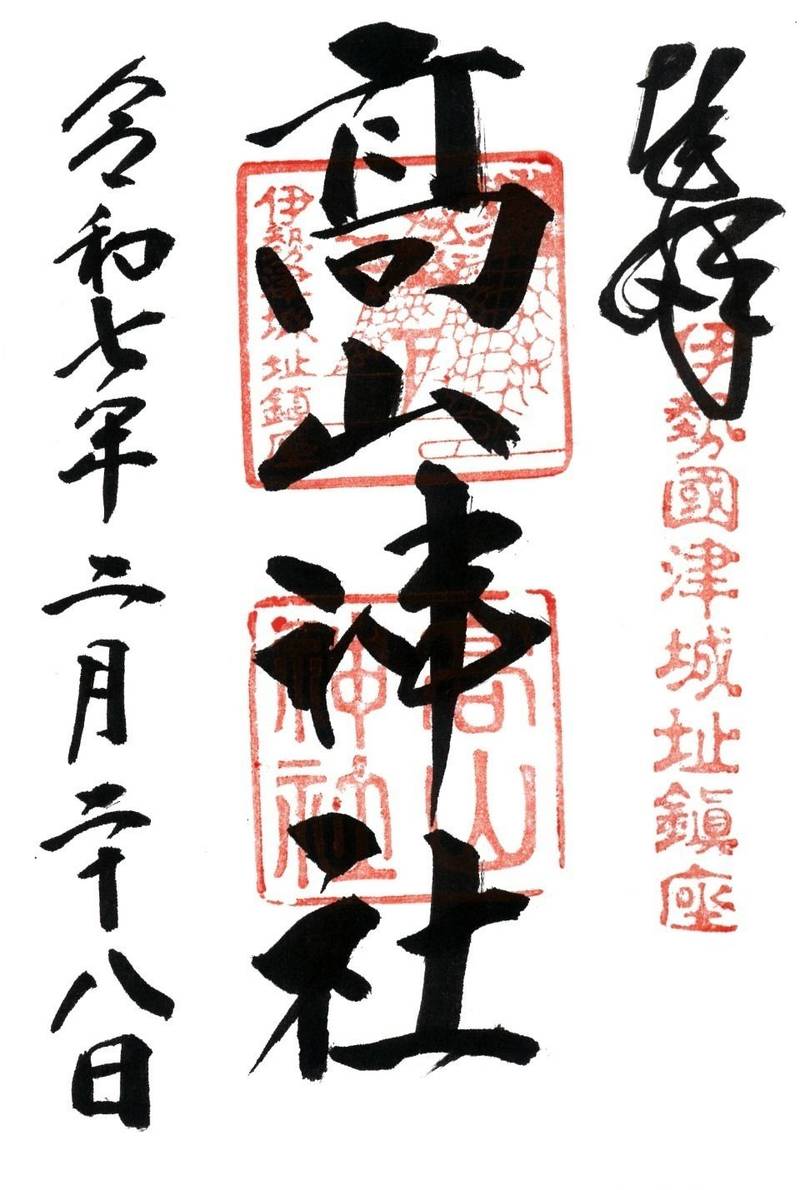 奉拝
伊勢國津城址鎮座
高山神社
伊勢津城址鎮座
高山
神社
令和七年二月二十八日